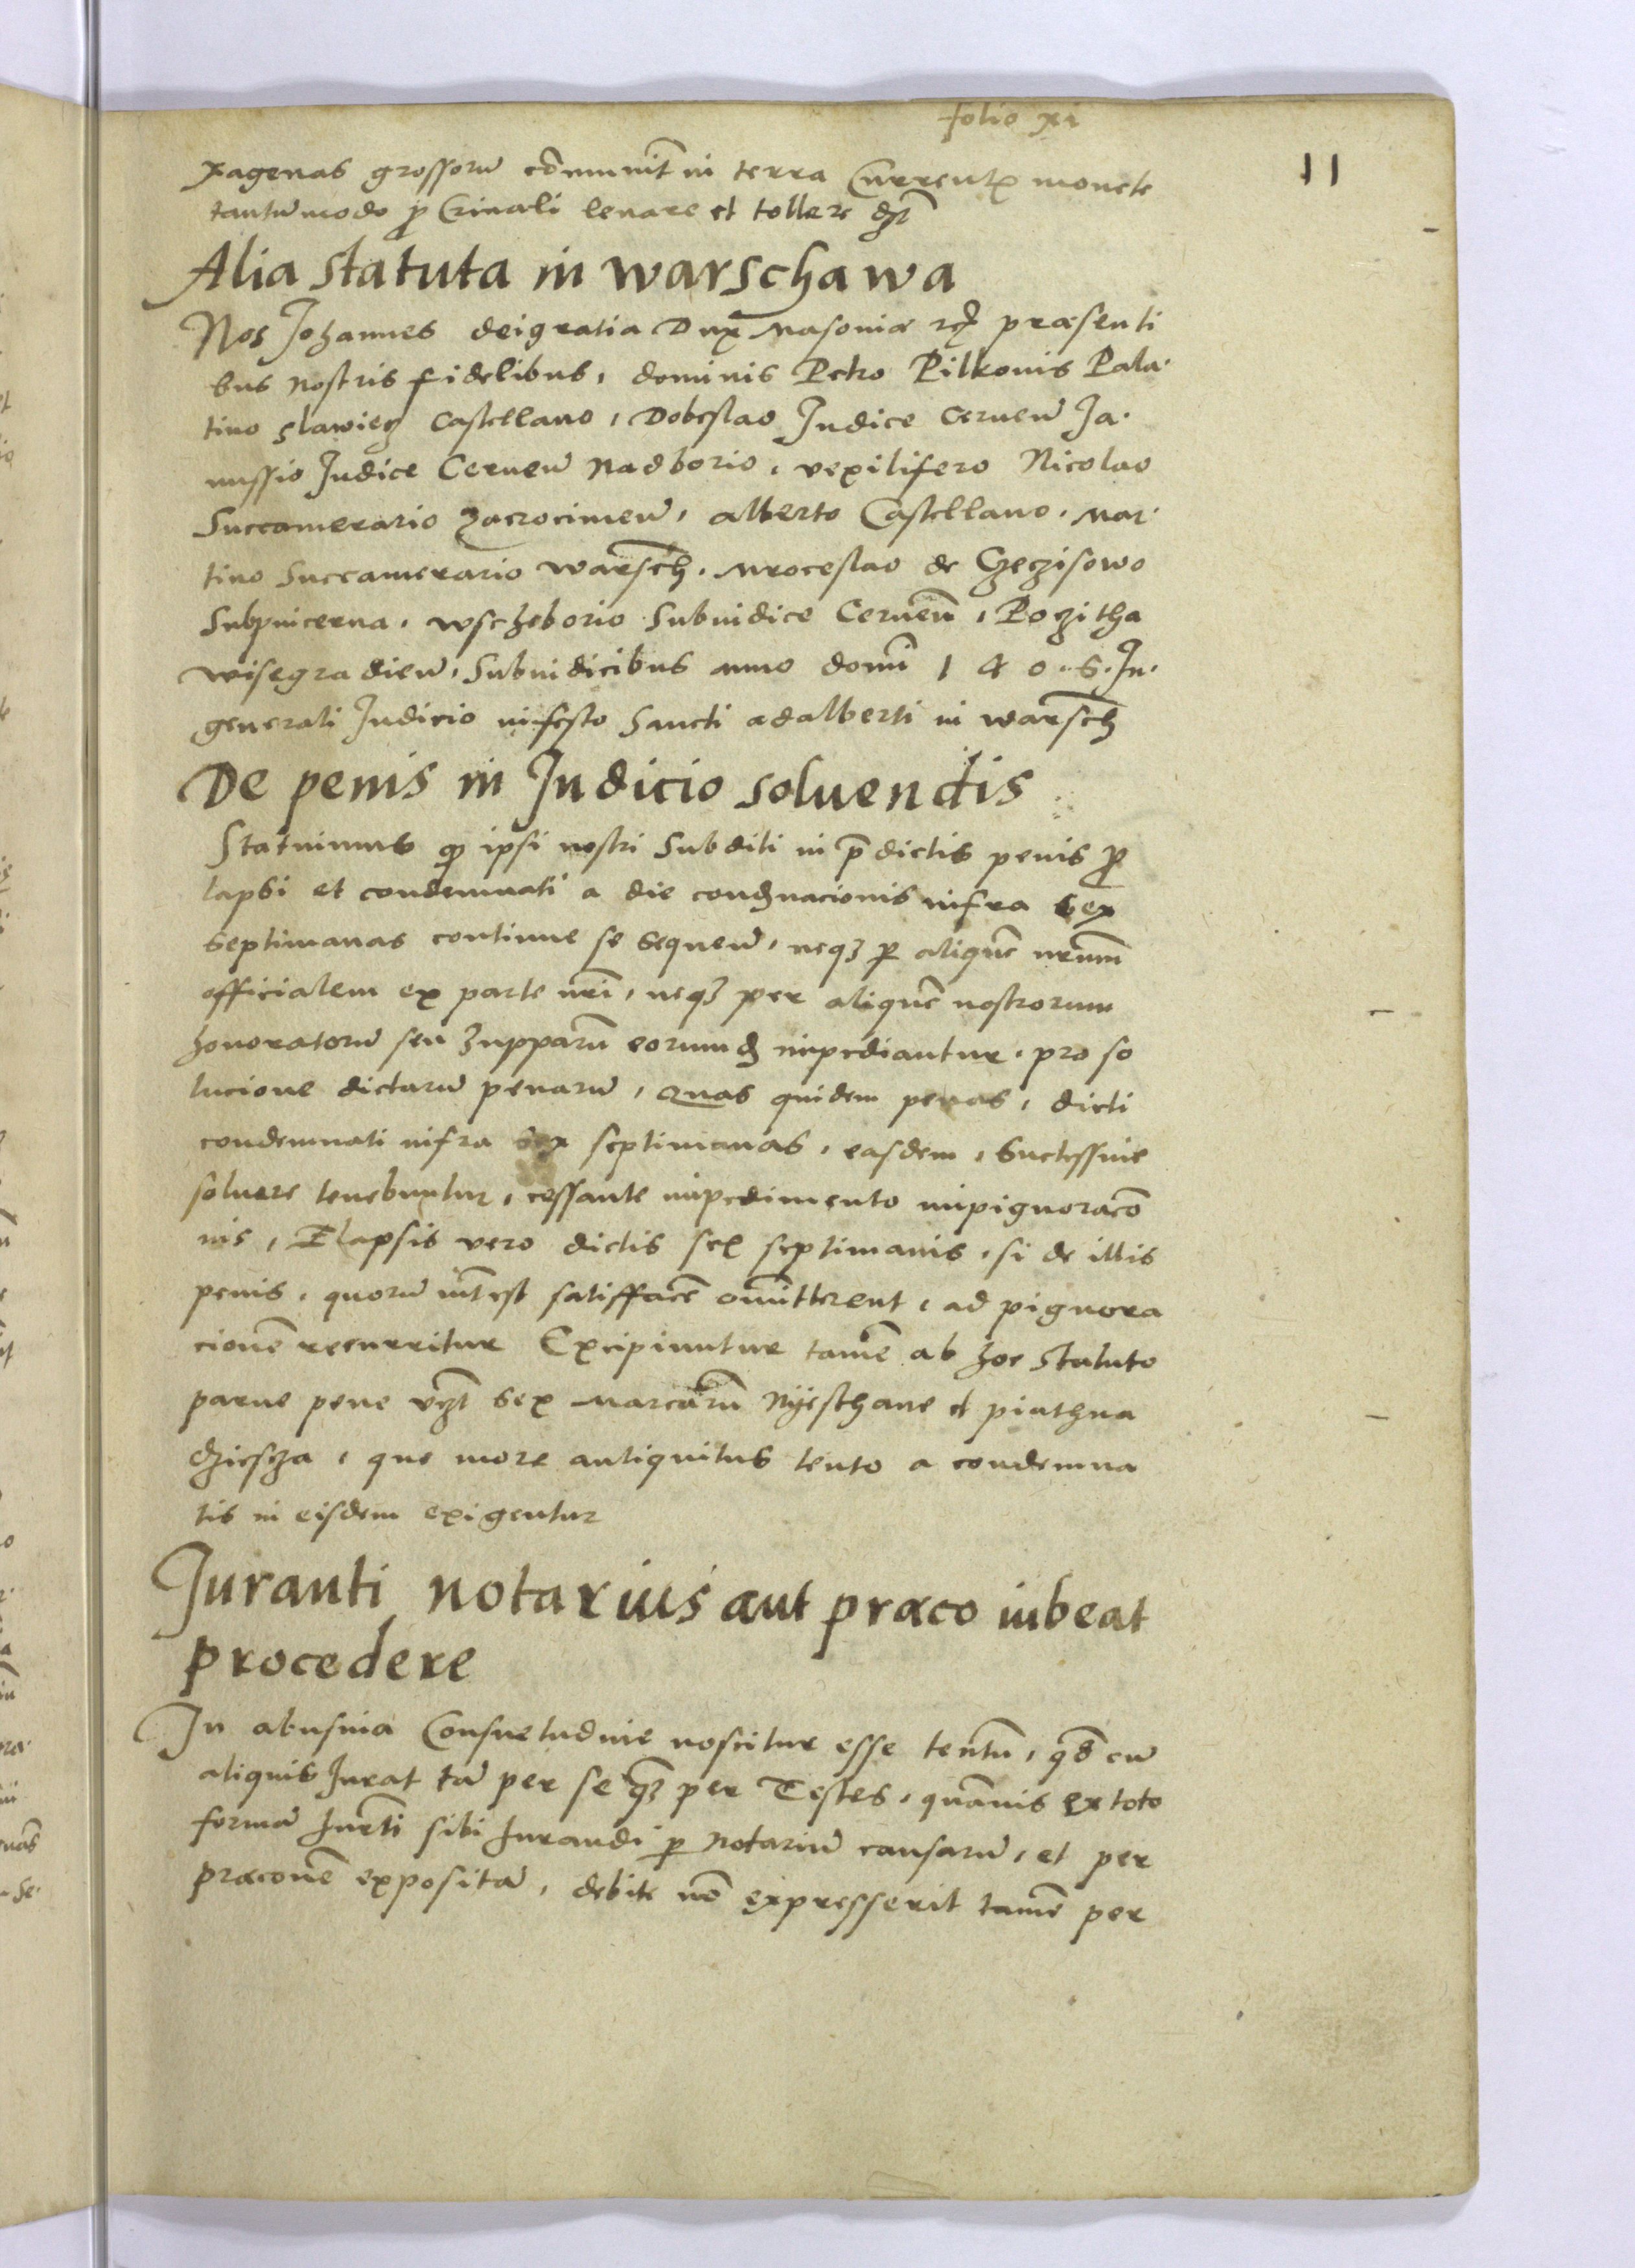 folio xi
11
xagenas grossorũ cõmunit̃ in terra Currentꝭ monete
tantũmodo ꝓ Crinali leuare et tollere dẓ̃t
Alia statuta in warschawa
Nos Johannes deigratia Dux Masouiæ ꝛcꝭ præsenti
bus nostris fidelibus, dominis Petro Pilkonis Pala·
tino slawiecz Castellano, Dobeslao Judice Cernen̄ Ja·
nussio Judice Cernen̄ Nadborio, vexilifero Nicolao
Succamerario zacrocimen̄, alberto Castellano, Mar·
tino Succamerario warsch̄. Mroceslao de Czeczisowo
Subpincerna, wscheborio Subiudice Cernen̄, Poczitha
wisegradien̄, Subiudicibus anno domi̅ 1 4 0 · 6. In·
generali Judicio in festo Sancti adalberti in warsch̄
De penis in Judicio soluendis
Statuimus ꝙ ipsi nostri Subditi in p̄dictis penis ꝓ
lapsi et condemnati a die condẽnacionis infra sex
septimanas continue se sequen̄, neqꝫ ꝑ aliquẽ nr̃um
officialem ex parte nr̃i, neqꝫ per aliquẽ nostrorum
honoratorũ seu zupparũ eorumdẽ impediantur. pro so
lucione dictarũ penarũ, Quas quidem penas, dicti
condemnati infra sex septimanas, easdem, successiue
soluere tenebuntur, cessante impedimento impignoracõ
nis, Elapsis vero dictis sex septimanis, si de illis
penis, quorũ int̃est satisfacẽ omitterent, ad pignora
cionẽ recurritur Excipiuntur tamẽ ab hoc statuto
parue pene vz̃ sex marcarũ Nyesthane et piathna
dziescza, que more antiquitus tento a condemna
tis in eisdem exigentur
Juranti notarius aut præco iubeat
procedere
In abusiua Consuetudine noscitur esse tentũ, qđ cũ
aliquis Jurat tã per se qꝫ̃ per Testes, quãuis ex toto
formã Jur̃ti sibi Jurandi ꝑ Notariũ causarũ, et per
præconẽ expositã, debite nõ expresserit tamẽ per